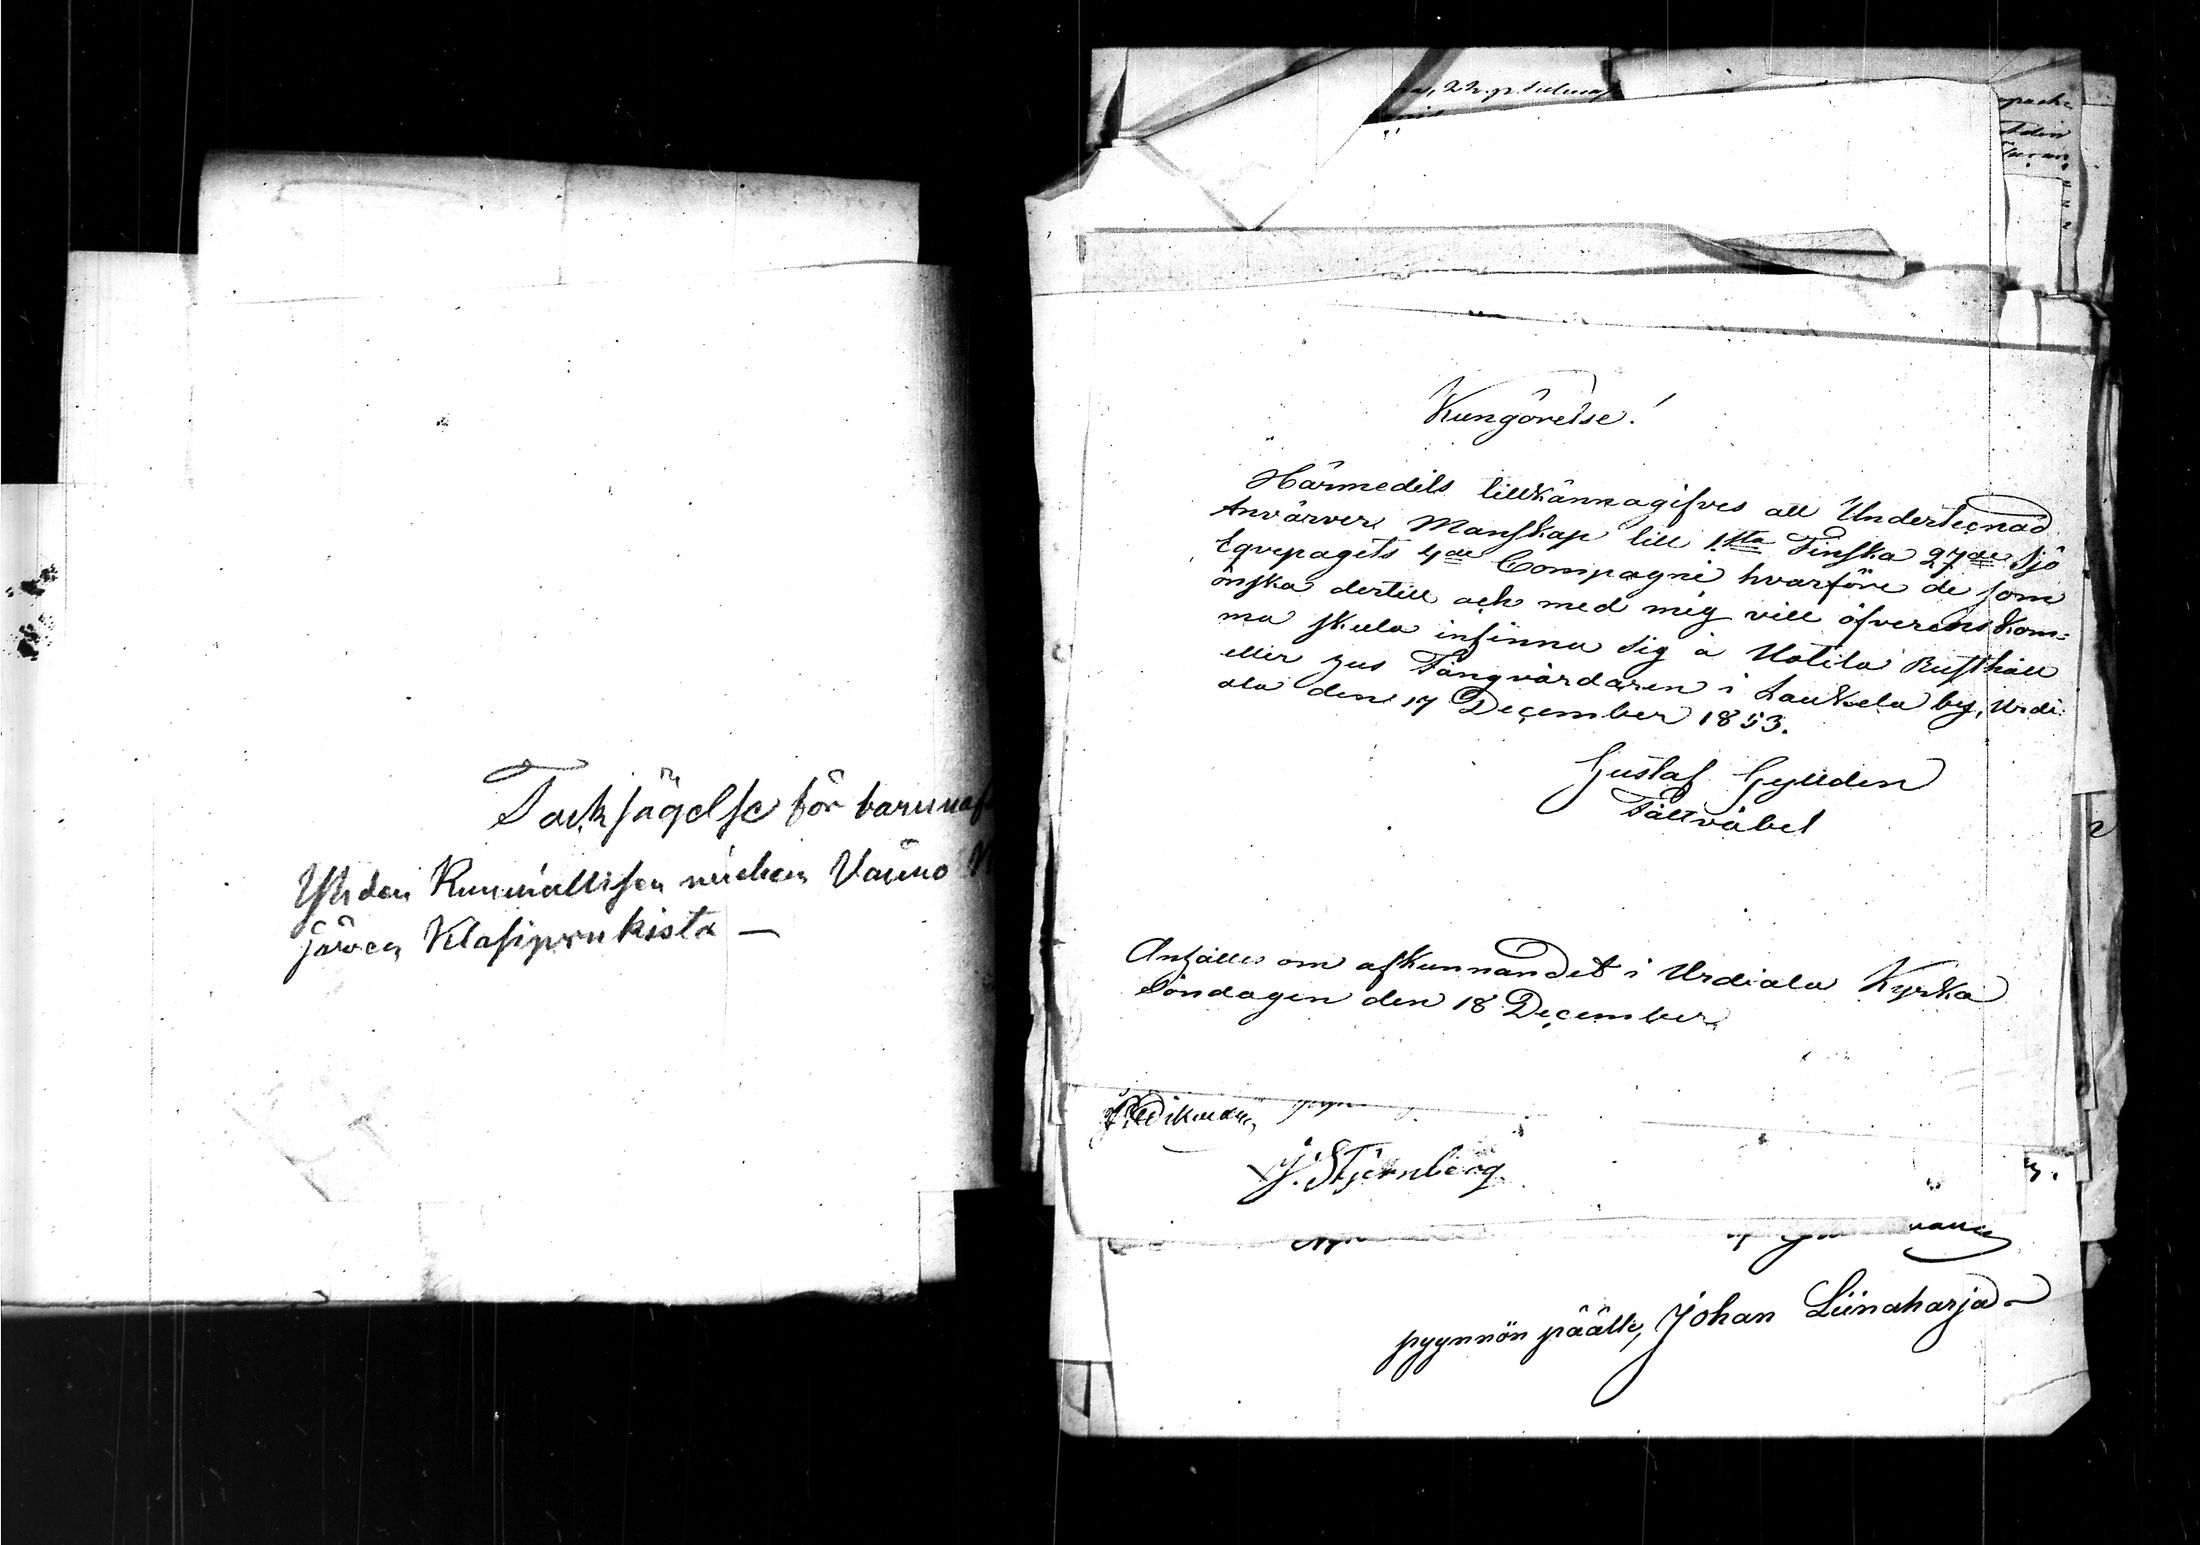 Tacksägelse för barnnaf
Yhden Kunniallisen miehen Vaimo
järven Klasiprukista —
Kungörelse!
Härmedels tillkännagifves att Undertecnad
Anvärver Manskap till 1sta Finska 27de Sjö
Eqvipagets 4de Compagnie hvarföre de som
önska dertill ock med mig vill öfverenskom=
ma skula infinna sig å Uotila Rusthåll
eller hus Fångvårdaren i Laukela by, Urdi-
ala den 17 December 1853.
Gustaf Gyllden
Fältväbel
Anhålles om afkunnandet i Urdiala Kyrka
Söndagen den 18 December
J. Stjernberg
pyynnön päälle, Johan Liinaharja